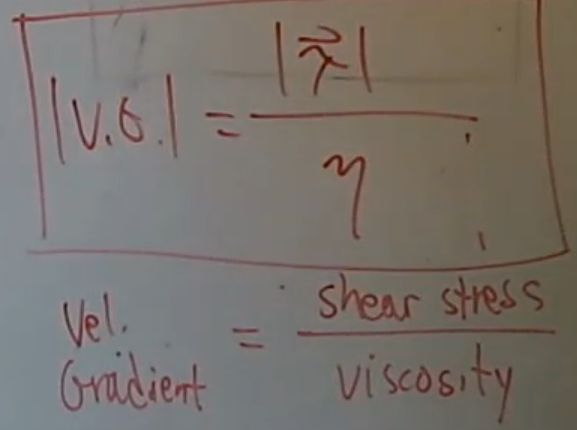 |V.G.| = |τ⃗| / η
Vel. Gradient = shear stress / viscosity